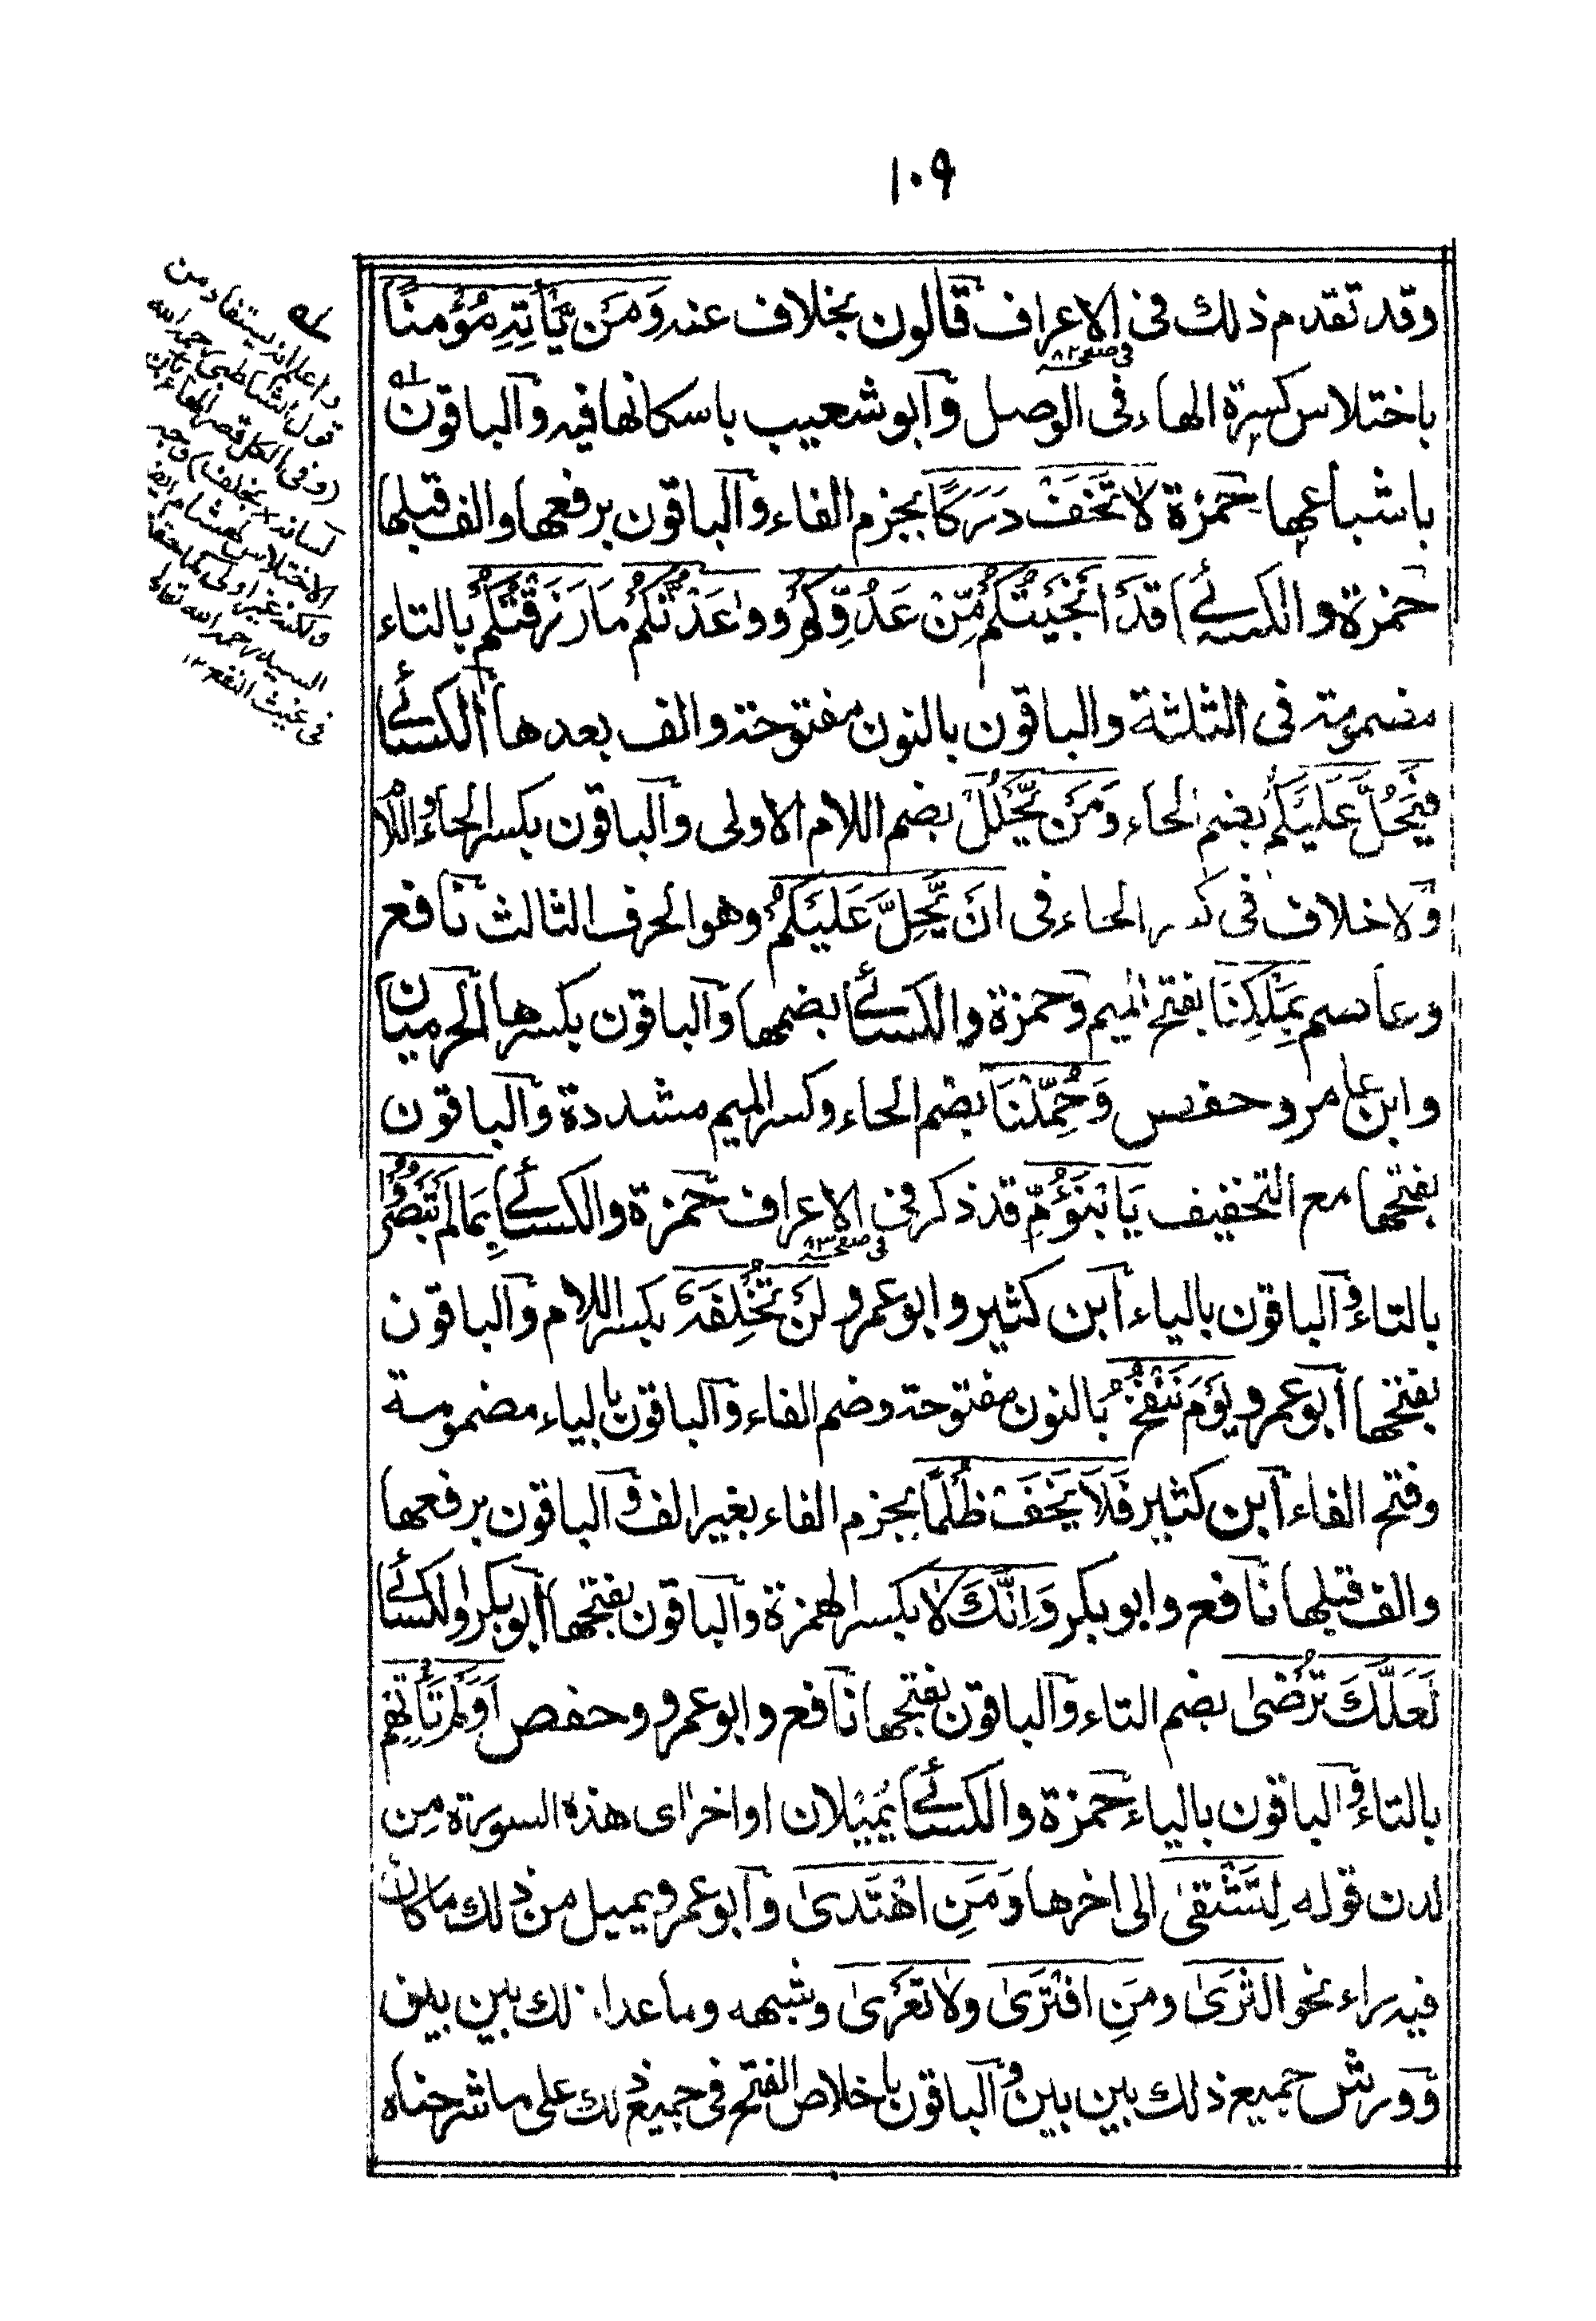 ١٠٩
وقد تقدم ذلك فى الاعراف قالون بخلاف عنه وَمَنْ يَّأْتِهِ مُؤْمِنًا
فى صفحه ٨٢
باختلاس كسرة الهاء فى الوصل وابو شعيب باسكانها فيه والباقون له
باشباعها حمزة لَا تَخَفْ دَرَكًا بجزم الفاء والباقون برفعها والف قبلها
حمزة والكسائى قَدْ اَنْجَيْتُكُمْ مِّنْ عَدُوِّكُمْ وَوٰعَدْتُّكُمْ مَا رَزَقْتُكُمْ بالتاء
مضمومة فى الثلثة والباقون بالنون مفتوحة والف بعدها الكسائى
فَيَحُلَّ عَلَيْكُمْ بضم الحاء وَمَنْ يَّحْلُلْ بضم اللام الاولى والباقون بكسر الحاء واللام
ولا خلاف فى كسر الحاء فى اَنْ يَّحِلَّ عَلَيْكُمْ وهو الحرف الثالث نافع
وعاصم بِمَلْكِنَا بفتح الميم وحمزة والكسائى بضمها والباقون بكسرها الحرميان
وابن عامر وحفص وَحُمِّلْنَا بضم الحاء وكسر الميم مشددة والباقون
بفتحها مع التخفيف يَابْنَؤُمِّ قد ذكر فى الاعراف حمزة والكسائى بِمَا لَمْ تَبْصُرُوْا
فى صفحه ٨٣
بالتاء والباقون بالياء ابن كثير وابو عمرو لَنْ تُخْلِفَهٗ بكسر اللام والباقون
بفتحها ابو عمرو يَوْمَ نَنْفُخُ بالنون مفتوحة وضم الفاء والباقون بالياء مضمومة
وفتح الفاء ابن كثير فَلَا يَخَفْ ظُلْمًا بجزم الفاء بغير الف والباقون برفعها
والف قبلها نافع وابو بكر وَاِنَّكَ لَا بكسر الهمزة والباقون بفتحها ابو بكر والكسائى
لَعَلَّكَ تُرْضٰى بضم التاء والباقون بفتحها نافع وابو عمرو وحفص اَوَلَمْ تَأْتِهِمْ
بالتاء والباقون بالياء حمزة والكسائى يُمِيْلَان اواخر اى هذه السورة من
لدن قوله لِتَشْقٰى الى اخرها وَمَنِ اهْتَدٰى وابو عمرو يميل من ذلك ما كان
فيه راء نحو الثَّرٰى ومَنِ افْتَرٰى ولَا تَعْرٰى وشبهه وما عدا ذلك بين بين
وورش جميع ذلك بين بين والباقون باخلاص الفتح فى جميع ذلك على ما شرحناه
له
واعلم انه يستفاد من
قول الشاطبى رحمه الله
(وفى الكل قصر الهاء بان
لسانه × بخلف) وجه
الاختلاس لهشام ايضا
ولكنه غير اولى كما حققه
السيد رحمه الله تعالى
فى غيث النفع ١٢